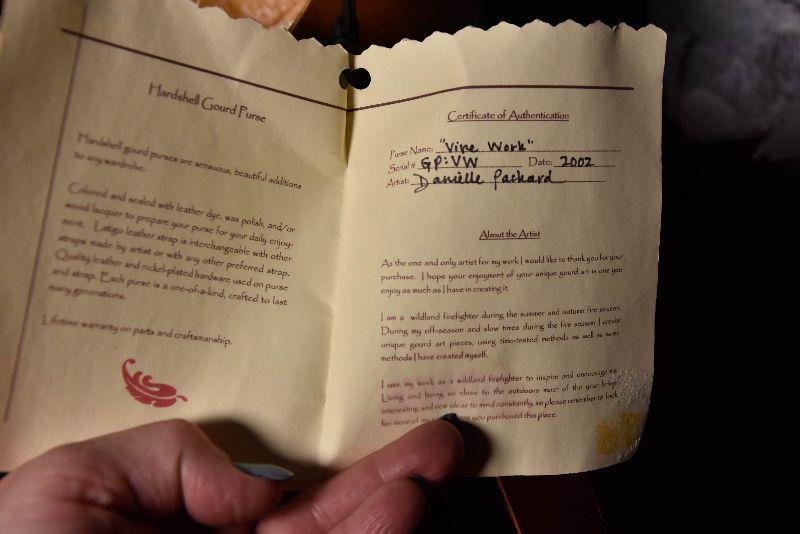 Hardshell Gourd Purse
Hardshell gourd purses are sensuous, beautiful additions
to any wardrobe.
Colored and sealed with leather dye, wax polish, and/or
wood lacquer to prepare your purse for your daily enjoy-
ment. Latigo leather strap is interchangeable with other
straps made by artist or with any other preferred strap.
Quality leather and nickel-plated hardware used on purse
and strap. Each purse is a one-of-a-kind, crafted to last
many generations.
Lifetime warranty on parts and craftsmanship.
Certificate of Authentication
Purse Name: "Vine Work"
Serial # GP:VW Date: 2002
Artist: Danielle Packard
About the Artist
As the one and only artist for my work I would like to thank you for your
purchase. I hope your enjoyment of your unique gourd art is one you
enjoy as much as I have in creating it.
I am a wildland firefighter during the summer and autumn fire season.
During my off-season and slow times during the fire season I create
unique gourd art pieces, using time-tested methods as well as some
methods I have created myself.
I use my work as a wildland firefighter to inspire and encourage me.
Living and being so close to the outdoors most of the year brings
interesting and new ideas to mind constantly, so please remember to look
for more of my you purchased this piece.